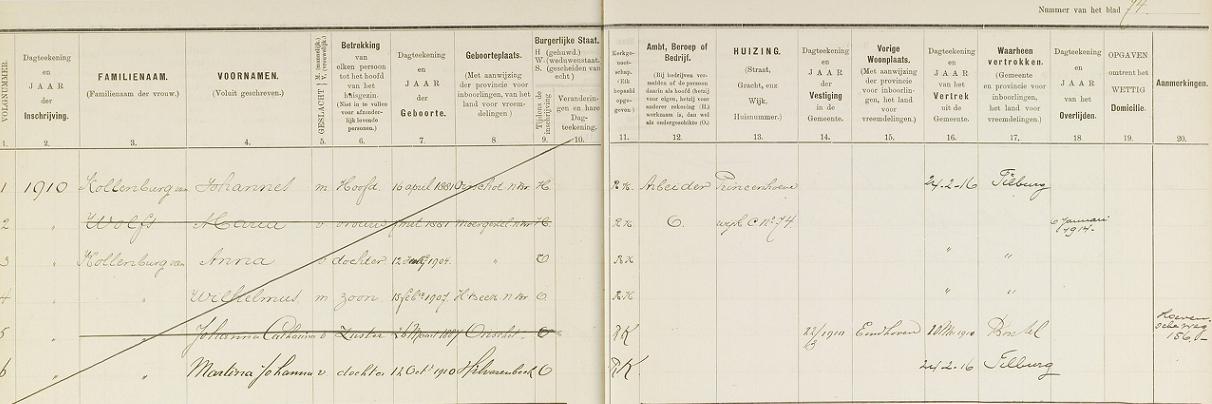 Nummer van het blad 74.
VOLGNUMMER.
Dagteekening en JAAR der Inschrijving.
FAMILIENAAM. (Familienaam der vrouw.)
VOORNAMEN. (Voluit geschreven.)
GESLACHT M. (mannelijk.) V. (vrouwelijk.)
Betrekking van elken persoon tot het hoofd van het huisgezin. (Niet in te vullen voor afzonderlijk levende personen.)
Dagteekening en JAAR der Geboorte.
Geboorteplaats. (Met aanwijzing der provincie voor inboorlingen, van het land voor vreemdelingen.)
Burgerlijke Staat. H (gehuwd.) W. (weduwenstaat. S. (gescheiden van echt)
Tijdens de inschrijving
Veranderingen en hare Dagteekening.
Kerkgenootschap. (Elk bepaald opgegeven.)
Ambt, Beroep of Bedrijf. (Bij bedrijven vermelden of de persoon daarin als hoofd (hetzij voor eigen, hetzij voor anderer rekening (H.) werkzaam is, dan wel als ondergeschikte (O.)
HUIZING. (Straat, Gracht, enz. Wijk. Huisnummer.)
Dagteekening en JAAR der Vestiging in de Gemeente.
Vorige Woonplaats. (Met aanwijzing der provincie voor inboorlingen, het land voor vreemdelingen.)
Dagteekening en JAAR van het Vertrek uit de Gemeente.
Waarheen vertrokken. (Gemeente en provincie voor inboorlingen, het land voor vreemdelingen.)
Dagteekening en JAAR van het Overlijden.
OPGAVEN omtrent het WETTIG Domicilie.
Aanmerkingen.
1. 2. 3. 4. 5. 6. 7. 8. 9. 10. 11. 12. 13. 14. 15. 16. 17. 18. 19. 20.
1 1910 Kollenburg van Johannes m Hoofd 16 april 1881 nBr H. R.K. Arbeider Princenhoeve 24-2-16 Tilburg
2 " Wolfs Maria v vrouw 1881 Moergestel nBr H. R K O. wijk C no 74. 6 Januari 1914.
3 " Kollenburg van Anna v dochter 12 1904 " O RK " "
4 " " Wilhelmus m zoon 15 feb 1907 H Beek n Br O R.K. " "
5 " " Johanna Catharina v Zuster 26 Maart 1887 Oirschot O RK 22/3 1910 Eindhoven 1910 Boxtel 156
6 " " Martina Johanna v dochter 12 Oct 1910 Hilvarenbeek O RK 24-2-16 Tilburg